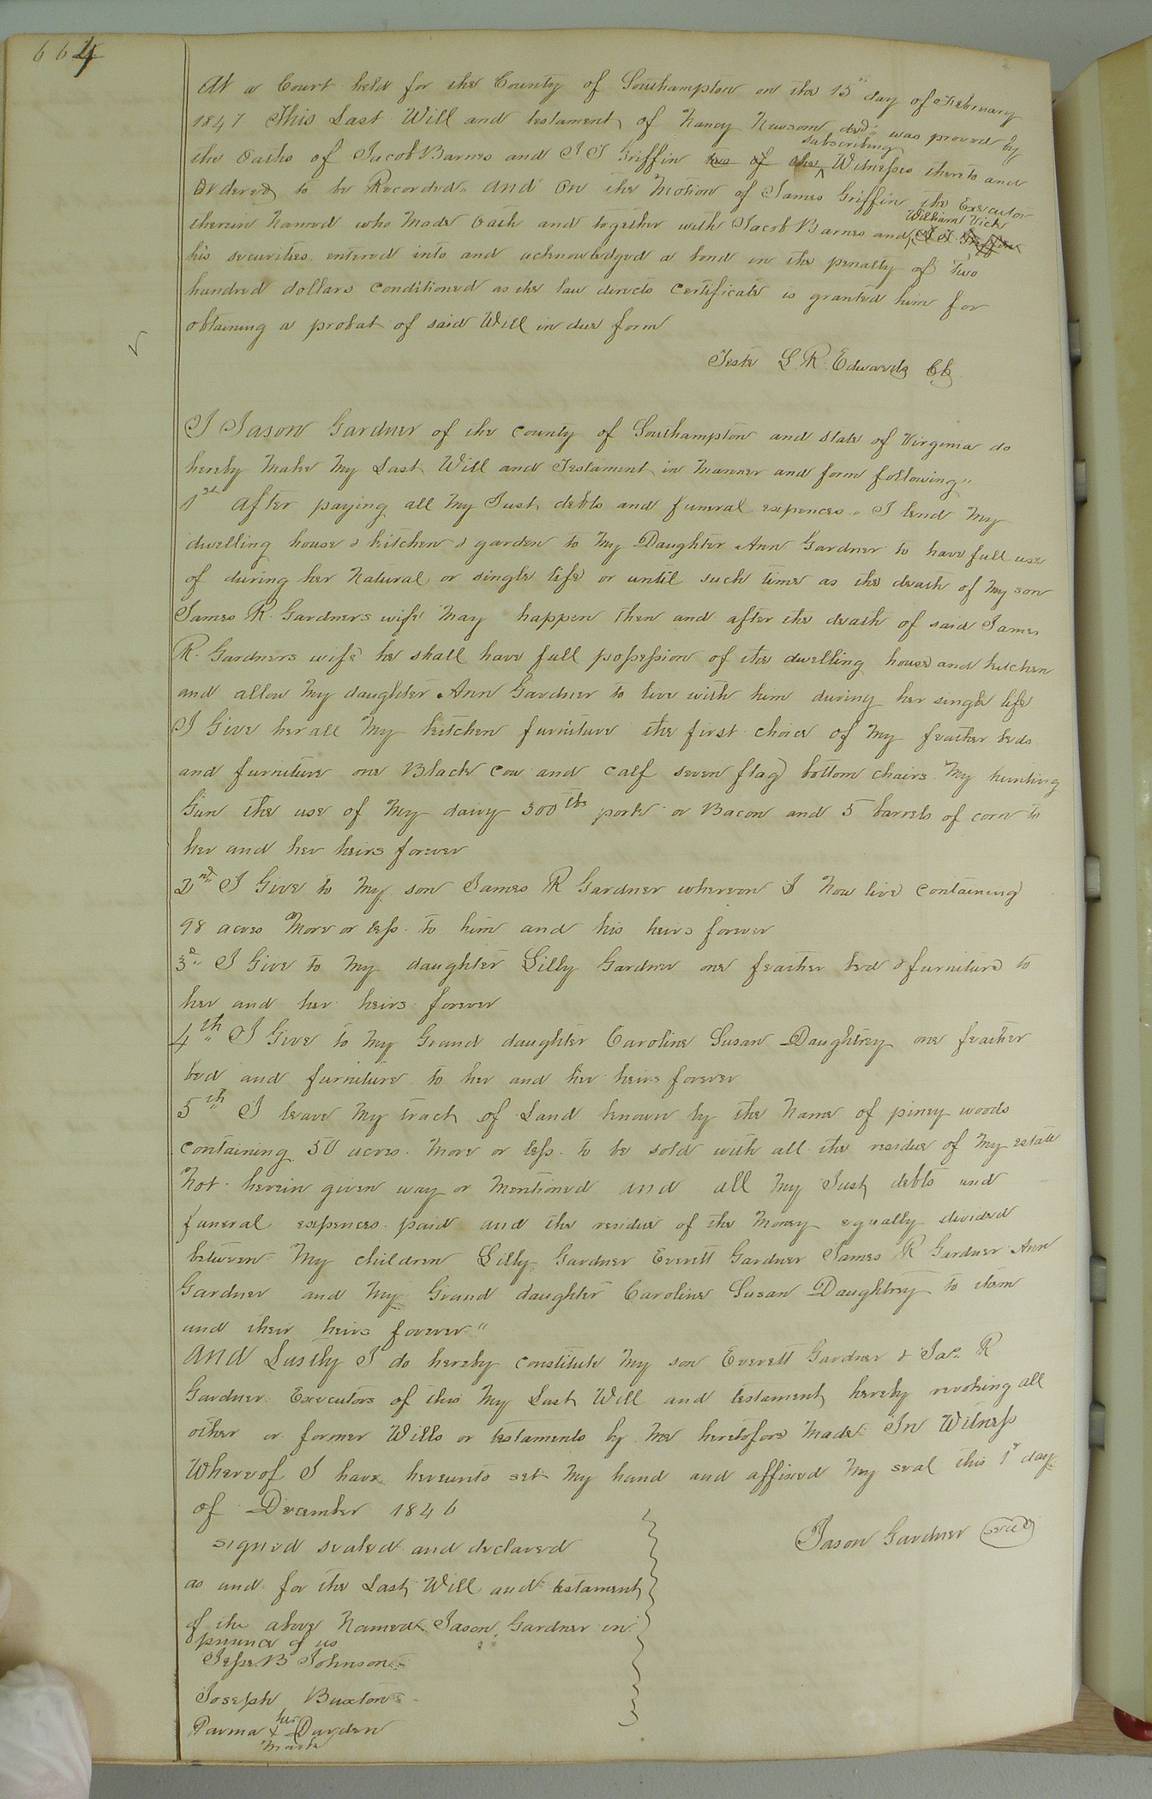 664
At a Court held for the County of Southampton on the 15th day of February
1847 This Last Will and testament of Nancy Newsom decd was proved by
the Oaths of Jacob Barnes and J J Griffin two of the subscribing Witnesses thereto and
Ordered to be Recorded. And On the Motion of James Griffin the Executor
therein Named who Made Oath and together with Jacob Barnes and William Vick J. J. Griffin
his securities entered into and acknowledged a bond in the penalty of Two
hundred dollars conditioned as the law directs Certificate is granted him for
obtaining a probat of said Will in due form
Teste L. R. Edwards Ck
I Jason Gardner of the County of Southampton and State of Virginia do
hereby Make My Last Will and Testament in Manner and form following"
1st After paying all My Just debts and funeral expences. I lend My
dwelling house & kitchen & garden to My Daughter Ann Gardner to have full use
of during her Natural or single life or until such time as the death of My son
James R. Gardners wife May happen then and after the death of said James
R. Gardners wife he shall have full possession of the dwelling house and kitchen
and allow My daughter Ann Gardner to live with him during her single life
I Give her all My kitchen furniture the first choice of My feather beds
and furniture one Black Cow and Calf seven flag bottom chairs My hunting
Gun the use of My dairy 300 lbs pork or Bacon and 5 barrels of corn to
her and her heirs forever
2nd I Give to My son James R Gardner whereon I Now live containing
98 acres More or less to him and his heirs forever
3d I Give to My daughter Lilly Gardner one feather bed & furniture to
her and her heirs forever
4th I Give to My Grand daughter Caroline Susan Daughtrey one feather
bed and furniture to her and her heirs forever
5th I leave My tract of Land known by the Name of piney woods
containing 50 acres More or less to be sold with all the residue of My estate
Not herein given way or Mentioned And all My Just debts and
funeral expences paid and the residue of the Money equally divided
between My children Lilly Gardner Everett Gardner James R Gardner Ann
Gardner and My Grand daughter Caroline Susan Daughtrey to them
and their heirs forever"
And Lastly I do hereby constitute My son Everett Gardner & Jas R
Gardner Executors of this My Last Will and testament hereby revoking all
other or former Wills or testaments by Me heretofore Made In Witness
Whereof I have hereunto set My hand and affixed My seal this 1st day
of December 1846
Jason Gardner seal
signed sealed and declared
as and for the Last Will and testament
of the above Named Jason Gardner in
presence of us
Jesse B Johnson
Joseph Buxton
Parma his x mark Darden